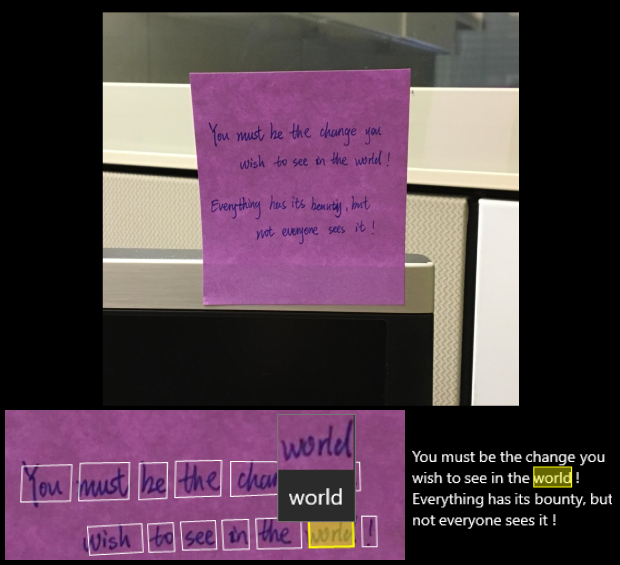 You must be the change you
wish to see in the world !
Everything has its beauty, but
not everyone sees it !
world
You must be the chan
world
wish to see in the world !
You must be the change you
wish to see in the world !
Everything has its bounty, but
not everyone sees it !